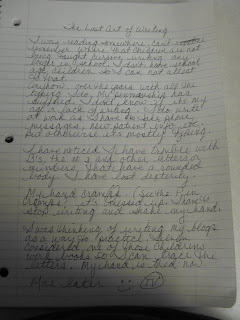 The Lost Art of Writing
I was reading somewhere, can't
remember where that children are not
being taught cursive writing any
longer in school. I don't have school
age children so I can not attest
to that.
Anyhow, over the years with all the
typing I do, my penmanship has
suffered. I don't know if it's my
age or lack of writing. I do write
at work as I have to take phone
messages, new patient info etc
but otherwise it's mostly typing.
I have noticed I have trouble with
B's, the # 8 and other letters or
numbers that have a rounded
body. I have lost dexterity.
My hand cramps. (See the Pain
Cramps) it's messed up. I have to
stop writing and shake my hand.
I was thinking of writing my blogs
as a way to practice. I even
considered one of those children's
work books so I can trace the
letters. My hand is tired now
More later